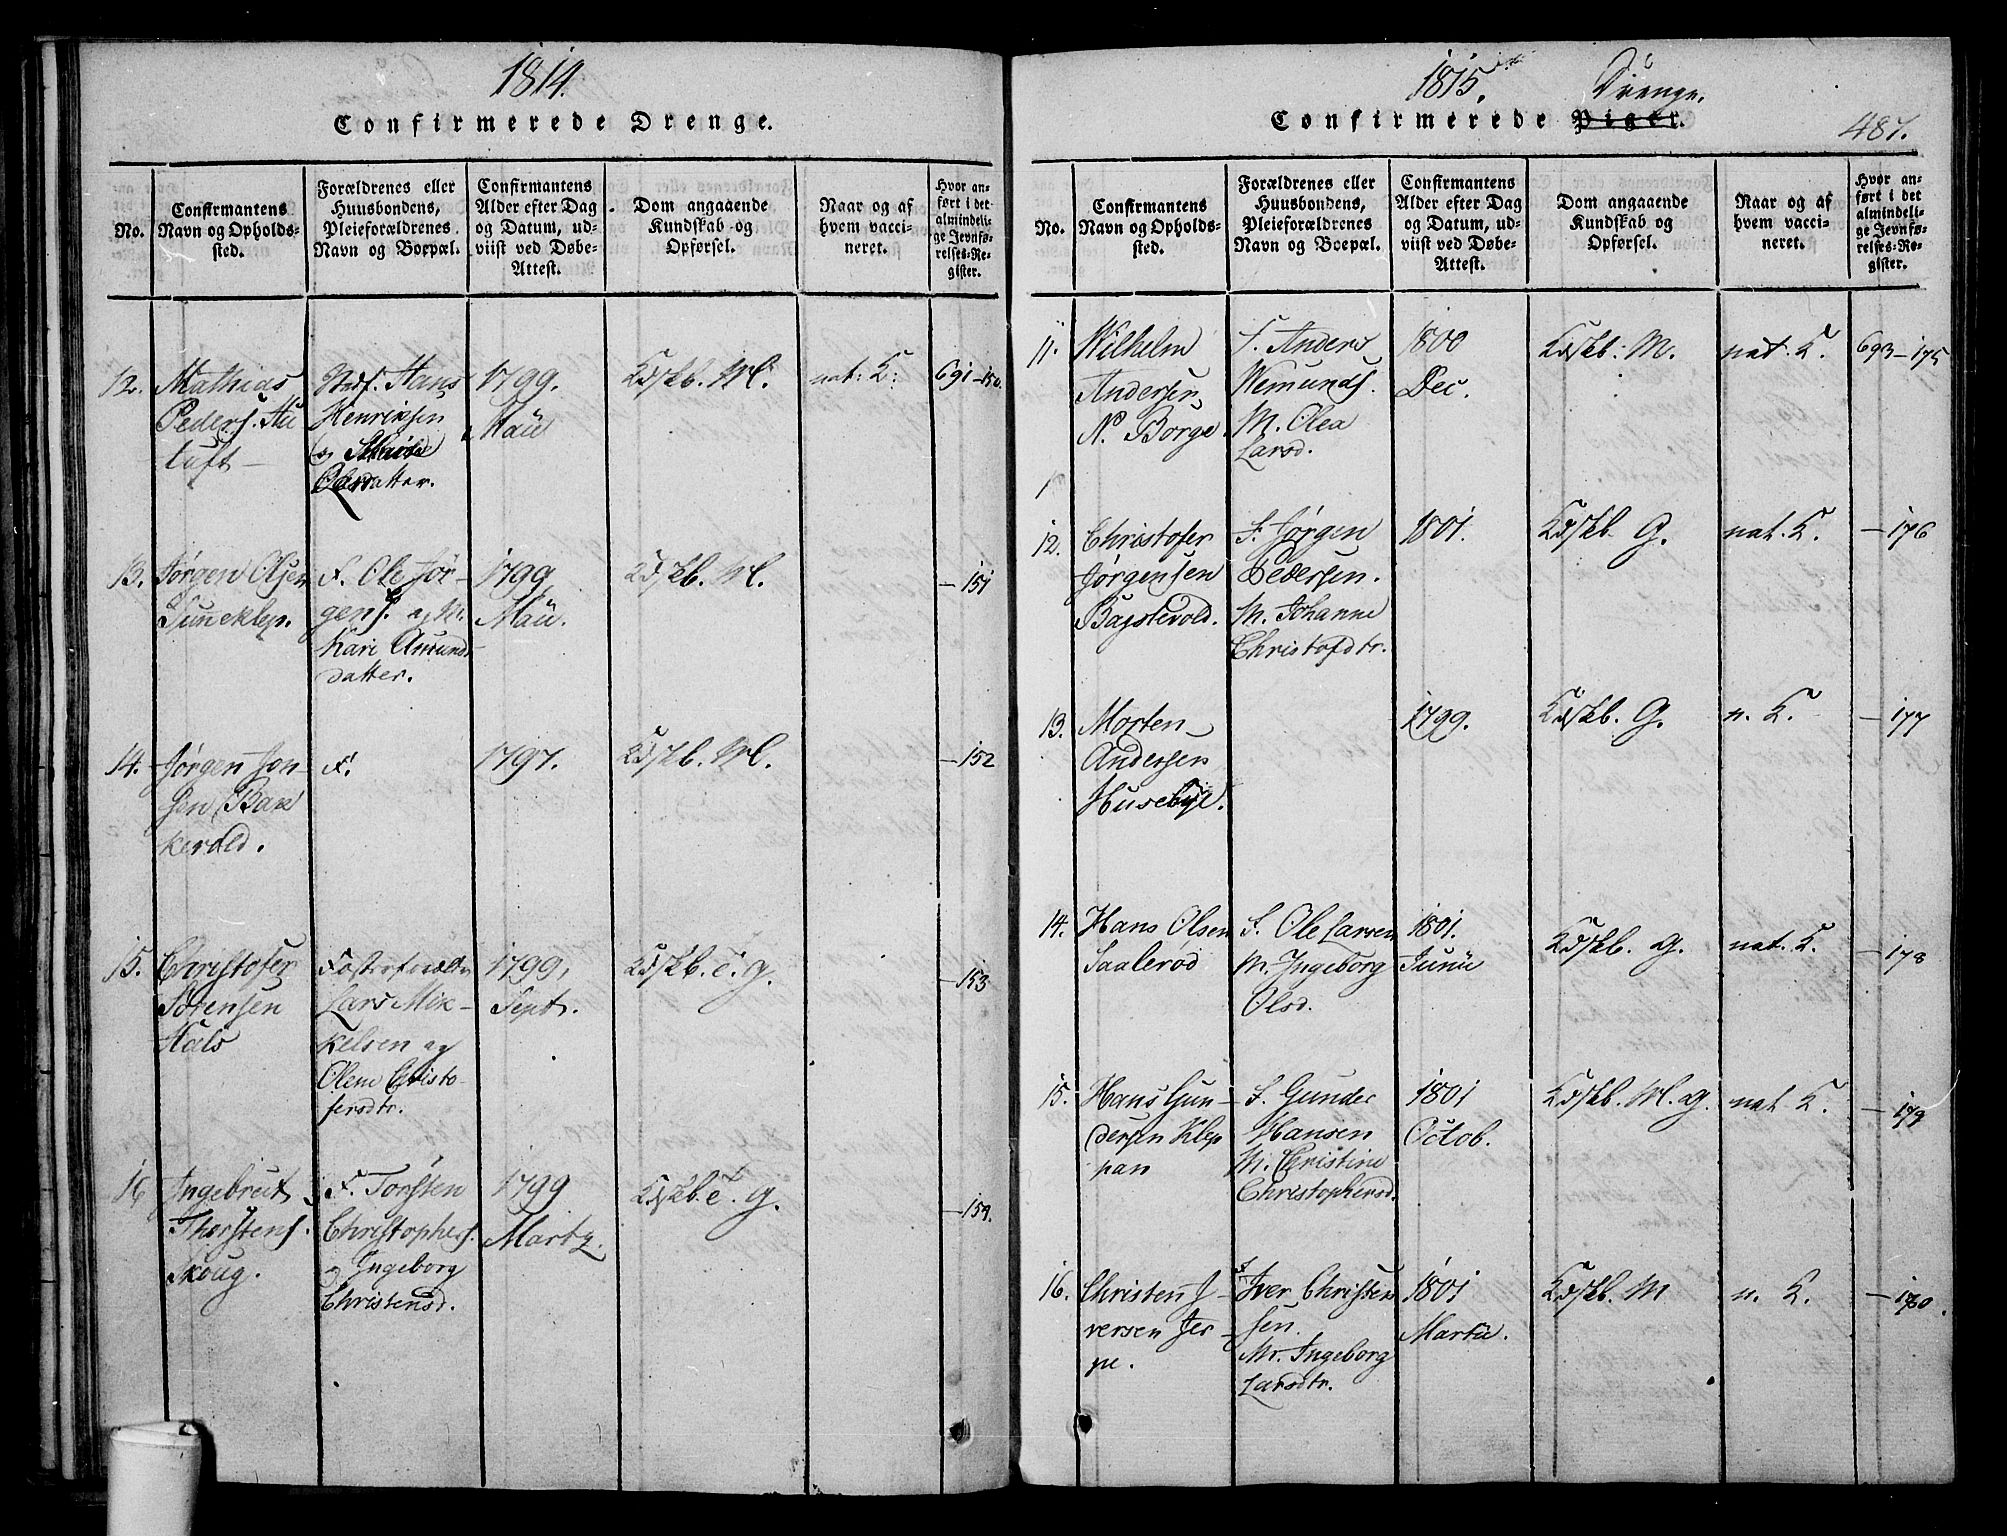 1814.
Confirmerede Drenge.
No.
Confirmantens
Navn og Opholds-
sted.
Forældrenes eller
Huusbondens,
Pleieforældrenes
Navn og Boepæl.
Confirmantens
Alder efter Dag
og Datum, ud-
viist ved Døbe-
Attest.
Dom angaaende
Kundskab og
Opførsel.
Naar og af
hvem vacci-
neret.
Hvor an-
ført i det
almindeli-
ge Jevnfø-
relses-Re-
gister.
12.
Mathias
Peders. Au
luft
Hans
Henriksen
og
Olesdatter.
1799.
Maii
Kdskb. M.
nat: K:
691-150.
13.
Jørgen Olsen
Sunneklep.
F. Ole Jør-
gens. og M.
Kari Amunds
datter.
1799
Maii.
Kdskb. M.
-151
14.
Jørgen Jon-
sen Bak
kevold.
F.
1797.
Kdskb. M.
-152
15.
Christofer
Sörensen
Hals
Fosterforældre
Lars Mik-
kelsen og
Olene Christo-
fersdtr.
1799,
Sept.
Kdskb. T. G.
-153
16
Ingebreit
Thorstens.
Skoug.
F. Torsten
Christophers.
og Ingeborg
Christensd.
1799
Marty.
Kdskb. T. G.
-154.
1815.
Drenge.
Confirmerede Piger.
487.
No.
Confirmantens
Navn og Opholds-
sted.
Forældrenes eller
Huusbondens,
Pleieforældrenes
Navn og Boepæl.
Confirmantens
Alder efter Dag
og Datum, ud-
viist ved Døbe-
Attest.
Dom angaaende
Kundskab og
Opførsel.
Naar og af
hvem vacci-
neret.
Hvor an-
ført i det
almindeli-
ge Jevnfø-
relses-Re-
gister.
11.
Wilhelm
Andersen
N. Borge.
F. Anders
Wemunds.
M. Olea
Larsd.
1800
Dec.
Kdskb: M.
nat. K.
693-175
12.
Christofer
Jørgensen
Bagstevold.
F. Jørgen
Pedersen.
M. Johanne
Christofdtr.
1801.
Kdskb G.
nat. K.
-176
13.
Morten
Andersen
Husebye.
1799.
Kdskb. G.
n. K.
-177
14.
Hans Olsen
Saalerød
F. Ole Larsen
M. Ingeborg
Olsd.
1801.
Junii
Kdskb. G.
nat. K.
-178
15.
Hans Gun-
dersen Klep
pan
F. Gunder
Hansen
M. Christine
Christophersd.
1801
Octob.
Kdskb. M. G.
nat. K.
-179
16.
Christen I-
versen Jer-
pe.
F. Iver Christen
sen.
M. Ingeborg
Larsdtr.
1801
Martii.
Kdskb. M
n. K.
-180.